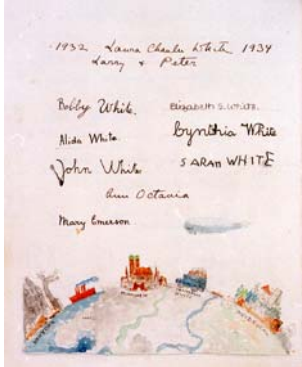 1932 Laura Chanler White 1934
Larry & Peter
Bobby White. Elizabeth S. White.
Alida White Cynthia White
John White SARAH WHITE
Ann Octavia
Mary Emerson